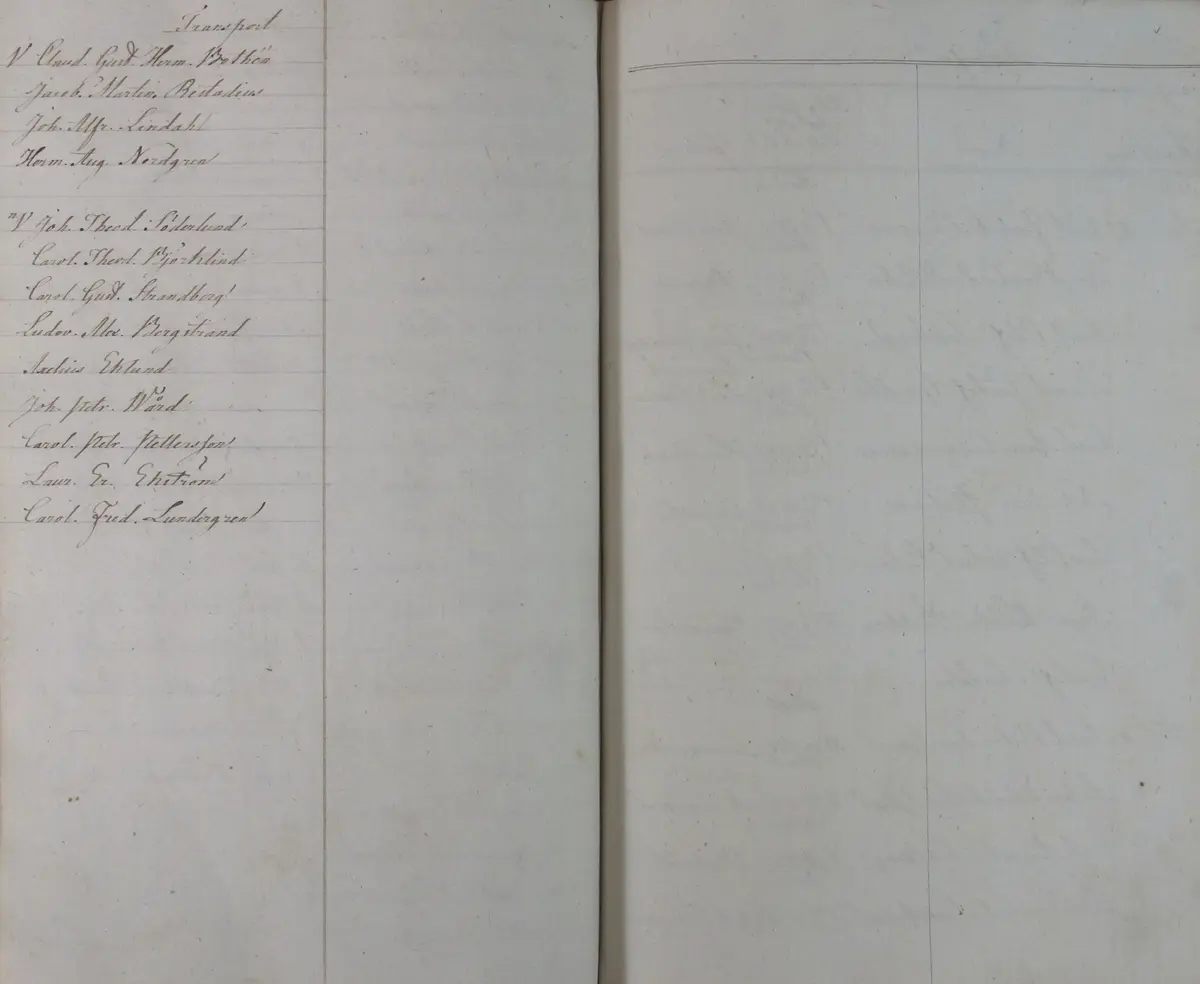 Transport
V Claud. Gust. Herm. Bothén
Jacob. Martin.
Joh. Alfr. Lindahl
Herm. Aug. Nordgren
"V Joh. Theod. Söderlund
Carol. Theod. Björklind
Carol. Gust. Strandberg
Ludov. Alex. Bergstrand
Axelius Eklund
Joh. Petr. Wård
Carol. Petr. Pettersson
Laur. Er. Ekström
Carol. Fred. Lundergren